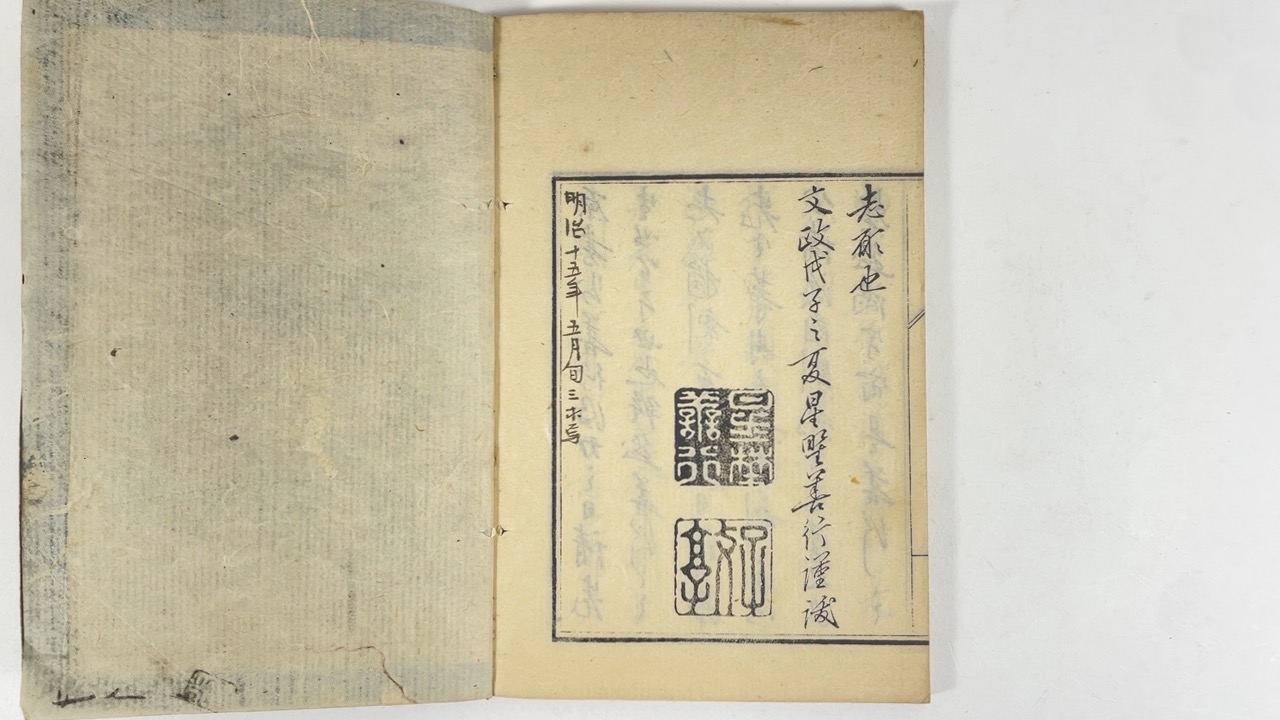 志願也
文政戊子之夏星野善行謹識
星埜善行
明治十五年 五月旬三木写